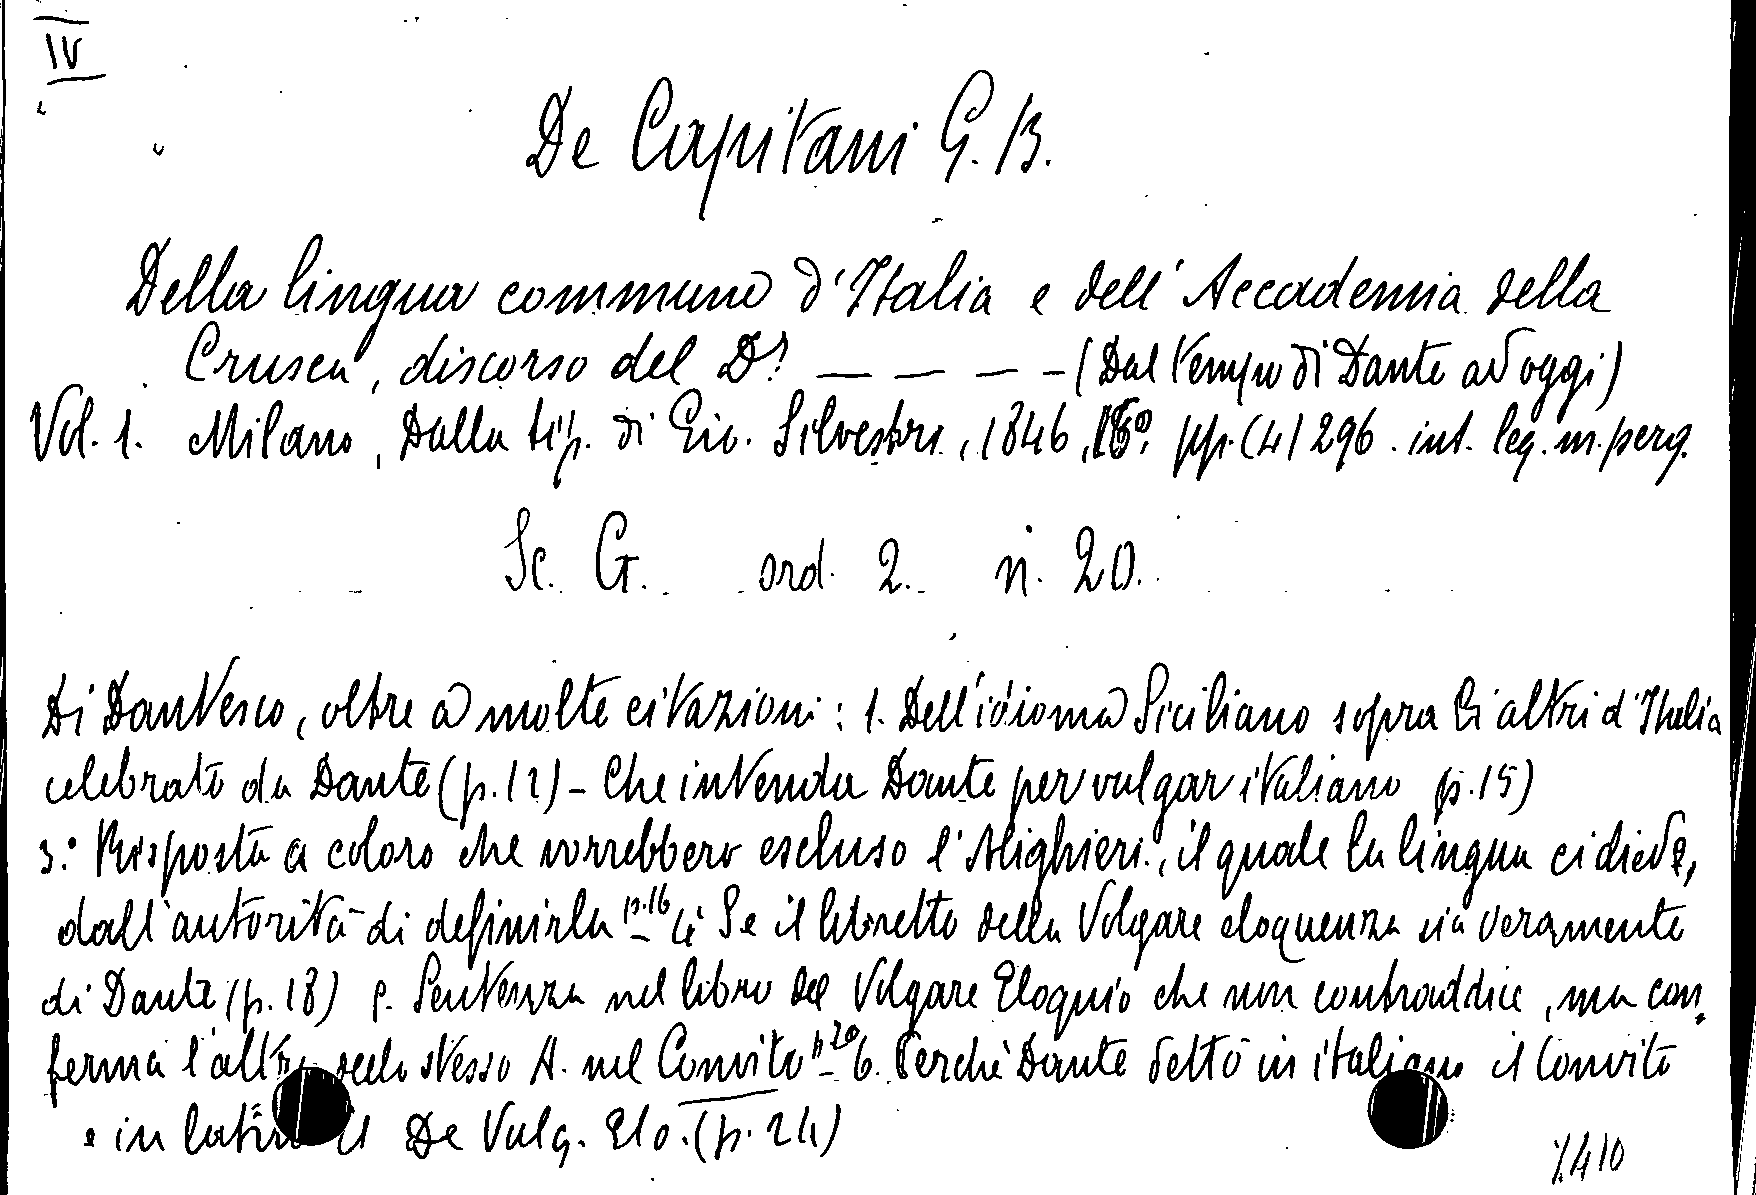 IV
De Capitani G. B.
Della lingua commune d'Italia e dell'Accademia della
Crusca, discorso del Dr. — — — — (Dal tempo di Dante ad oggi)
Vol. 1. Milano, Dalla tip. di Gio. Silvestri, 1846, 16°. pp. (4) 296. int. leg. m. perg.
Sc. G. ord. 2. n. 20.
Di Dantesco, oltre a molte citazioni: 1. Dell'idioma Siciliano sopra li altri d'Italia
celebrato da Dante (p. 12) - Che intenda Dante per vulgar italiano p. 15)
3.° Risposta a coloro che vorrebbero escluso l'Alighieri, il quale la lingua ci diede,
dall'autorità di definirla p. 16 - 4° Se il libretto della Volgare eloquenza sia veramente
di Dante (p. 18) 5. Sentenza nel libro del Volgare Eloquio che non contraddice, ma con,
ferma l'altra dello stesso A. nel Convito p. 20 - 6. Perchè Dante dettò in italiano il Convito
e in latino il De Vulg. Elo. (p. 24)